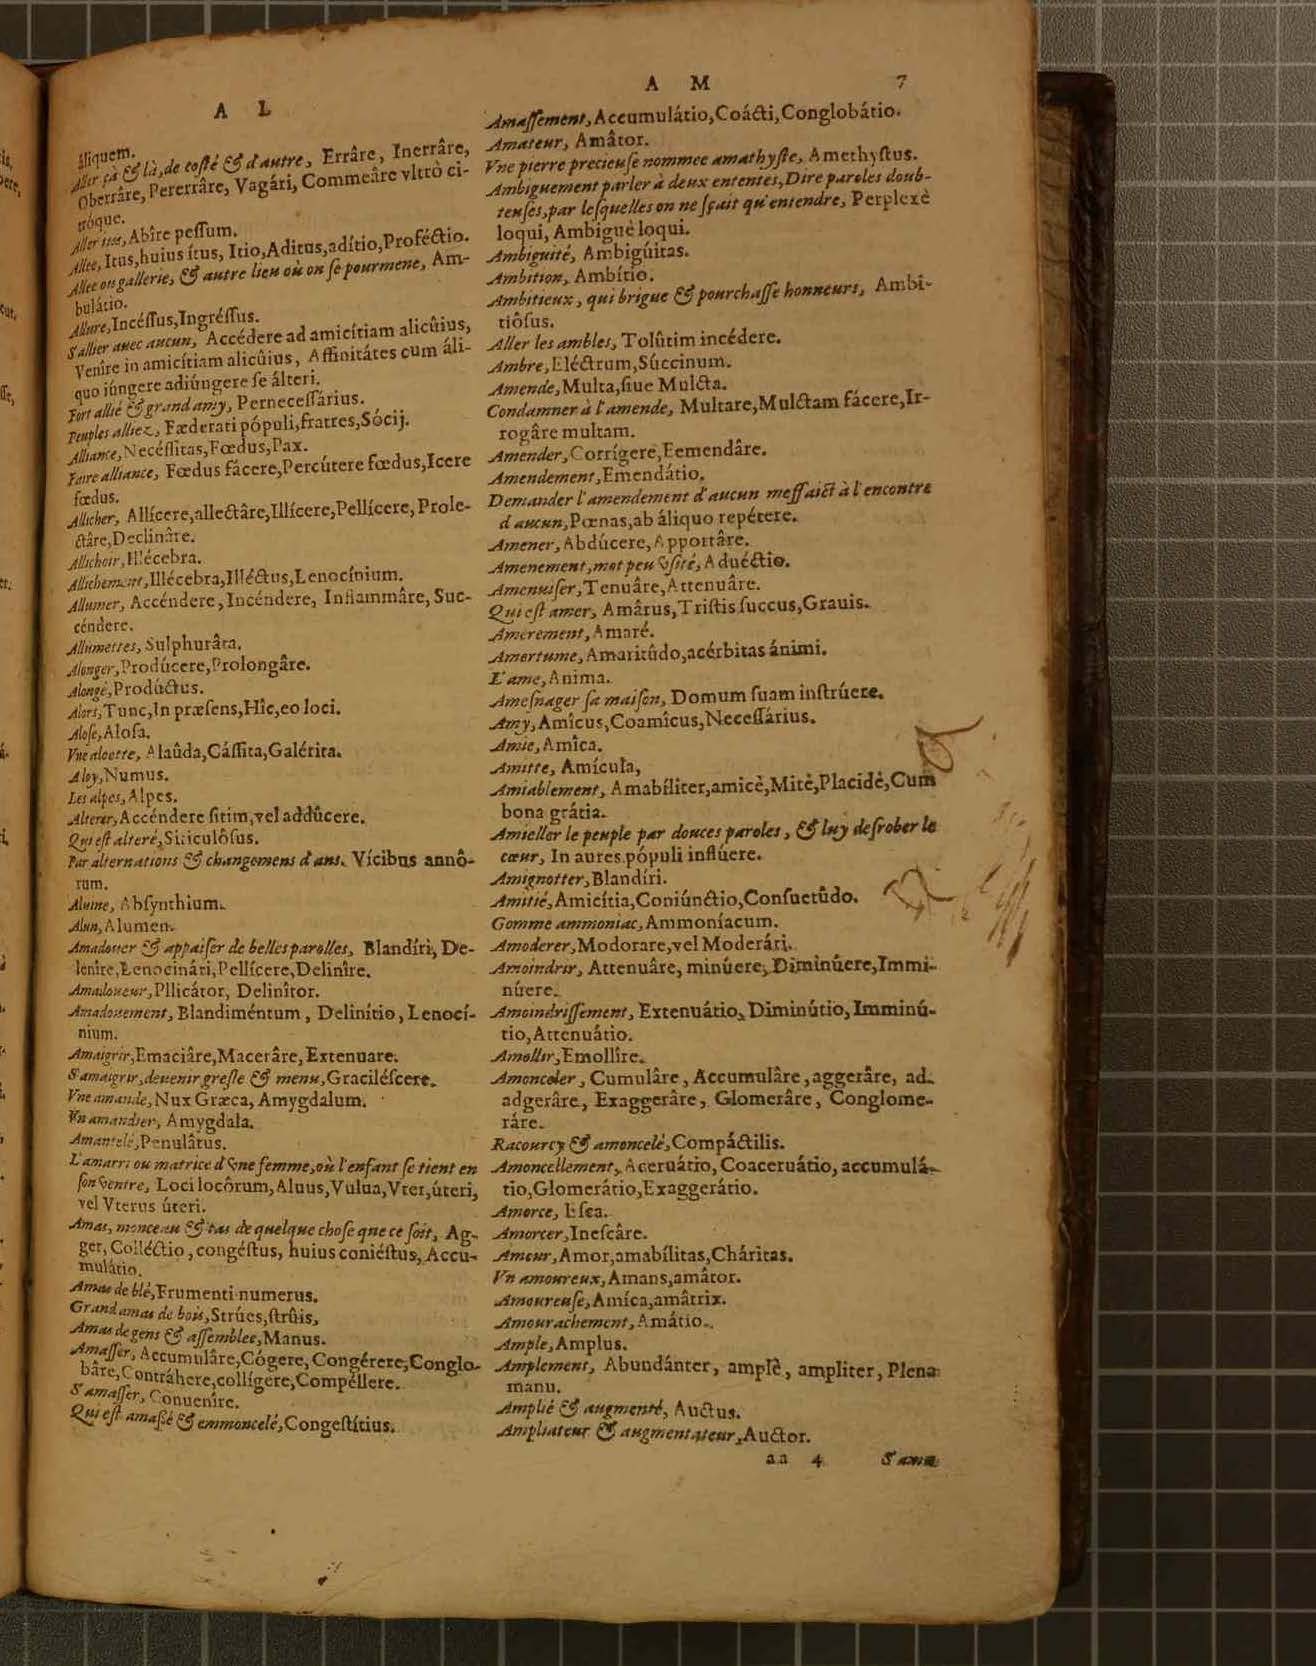 A L
áliquem.
Aller çà & là, de costé & d'autre, Errâre, Inerrâre,
Oberrâre, Pererrâre, Vagári, Commeâre vltrò ci-
tróque.
Aller Abîre pessum.
Allee, Itus, huius ítus, Itio, Aditus, adítio, Proféctio.
Allee ou gallerie, & autre lieu où on se pourmene, Am-
bulátio.
Allure, Incéssus, Ingréssus.
S'allier auec aucun, Accédere ad amicítiam alicûius,
Venîre in amicítiam alicûius, Affinitátes cum áli-
quo iúngere adiúngere se álteri.
Fort allié & grand amy, Pernecessárius.
Peuples alliez, Fœderati pópuli, fratres, Sócij.
Alliance, Necéssitas, Fœdus, Pax.
Faire alliance, Fœdus fácere, Percútere fœdus, Icere
fœdus.
Allicher, Allícere, allectâre, Illícere, Pellícere, Prole-
ctâre, Declinâre.
Allichoir, Illécebra.
Allichement, Illécebra, Illéctus, Lenocínium.
Allumer, Accéndere, Incéndere, Inflammâre, Suc-
céndere.
Allumettes, Sulphurâta.
Alonger, Prodúcere, Prolongâre.
Alongé, Prodúctus.
Alors, Tunc, In præsens, Hîc, eo loci.
Alose, Alosa.
Vne aloette, Alaûda, Cássita, Galérita.
Aloy, Numus.
Les alpes, Alpes.
Alterer, Accéndere sitim, vel addûcere.
Qui est alteré, Siticulôsus.
Par alternations & changemens d'ans. Vícibus annô-
rum.
Aluine, Absynthium.
Alun, Alumen.
Amadouer & appaiser de belles parolles, Blandíri, De-
lenîre, Lenocinári, Pellícere, Delinîre.
Amadoueur, Pllicátor, Delinîtor.
Amadouement, Blandiméntum, Delinítio, Lenocí-
nium.
Amaigrir, Emaciâre, Macerâre, Extenuare.
S'amaigrir, deuenir gresle & menu, Graciléscere.
Vne amande, Nux Græca, Amygdalum.
Vn amandier, Amygdala.
Amantelé, Penulâtus.
L'amarri ou matrice d'vne femme, où l'enfant se tient en
son ventre, Loci locôrum, Aluus, Vulua, Vter, úteri,
vel Vterus úteri.
Amas, monceau & tas de quelque chose que ce soit, Ag-
ger, Colléctio, congéstus, huius coniéstus, Accu-
mulátio.
Amas de blé, Frumenti numerus.
Grand amas de bois, Strúes, strûis,
Amas de gens & assemblee, Manus.
Amasser, Accumulâre, Cógere, Congérere, Conglo-
bâre, Contráhere, collígere, Compéllere.
S'amasser, Conuenîre.
Qui est amassé & emmoncelé, Congestítius.
A M 7
Amassement, Accumulátio, Coácti, Conglobátio.
Amateur, Amâtor.
Vne pierre precieuse nommee amathyste, Amethystus.
Ambiguement parler à deux ententes, Dire paroles doub-
teuses, par lesquelles on ne sçait qu'entendre, Perplexè
loqui, Ambiguè loqui.
Ambiguité, Ambigúitas.
Ambition, Ambítio.
Ambitieux, qui brigue & pourchasse honneurs, Ambi-
tiôsus.
Aller les ambles, Tolûtim incédere.
Ambre, Eléctrum, Súccinum.
Amende, Multa, siue Mulcta.
Condamner à l'amende, Multare, Mulctam fácere, Ir-
rogâre multam.
Amender, Corrígere, Eemendâre.
Amendement, Emendátio.
Demander l'amendement d'aucun meffaict à l'encontre
d'aucun, Pœnas, ab áliquo repétere.
Amener, Abdúcere, Apportâre.
Amenement, mot peu vsité, Aduéctio.
Amenuiser, Tenuâre, Attenuâre.
Qui est amer, Amârus, Tristis succus, Grauis.
Amerement, Amaré.
Amertume, Amaritûdo, acérbitas ánimi.
L'ame, Anima.
Amesnager sa maison, Domum suam instrúere.
Amy, Amîcus, Coamícus, Necessárius.
Amie, Amîca.
Amitte, Amícula,
Amiablement, Amabíliter, amicè, Mitè, Placidè, Cum
bona grátia.
Amieller le peuple par douces paroles, & luy desrober le
cœur, In aures pópuli inflúere.
Amignotter, Blandíri.
Amitié, Amicítia, Coniúnctio, Consuetûdo.
Gomme ammoniac, Ammoníacum.
Amoderer, Modorare, vel Moderári.
Amoindrir, Attenuâre, minúere, Diminúere, Immi-
núere.
Amoindrissement, Extenuátio, Diminútio, Imminú-
tio, Attenuátio.
Amollir, Emollîre.
Amonceler, Cumulâre, Accumulâre, aggerâre, ad-
adgerâre, Exaggerâre, Glomerâre, Conglome-
râre.
Racourcy & amoncelé, Compáctilis.
Amoncellement, Aceruátio, Coaceruátio, accumulá-
tio, Glomerátio, Exaggerátio.
Amorce, Esca.
Amorcer, Inescâre.
Amour, Amor, amabílitas, Cháritas.
Vn amoureux, Amans, amâtor.
Amoureuse, Amíca, amâtrix.
Amourachement, Amátio.
Ample, Amplus.
Amplement, Abundánter, amplè, ampliter, Plena
manu.
Amplié & augmenté, Auctus.
Ampliateur & augmentateur, Auctor.
aa 4 S'amu